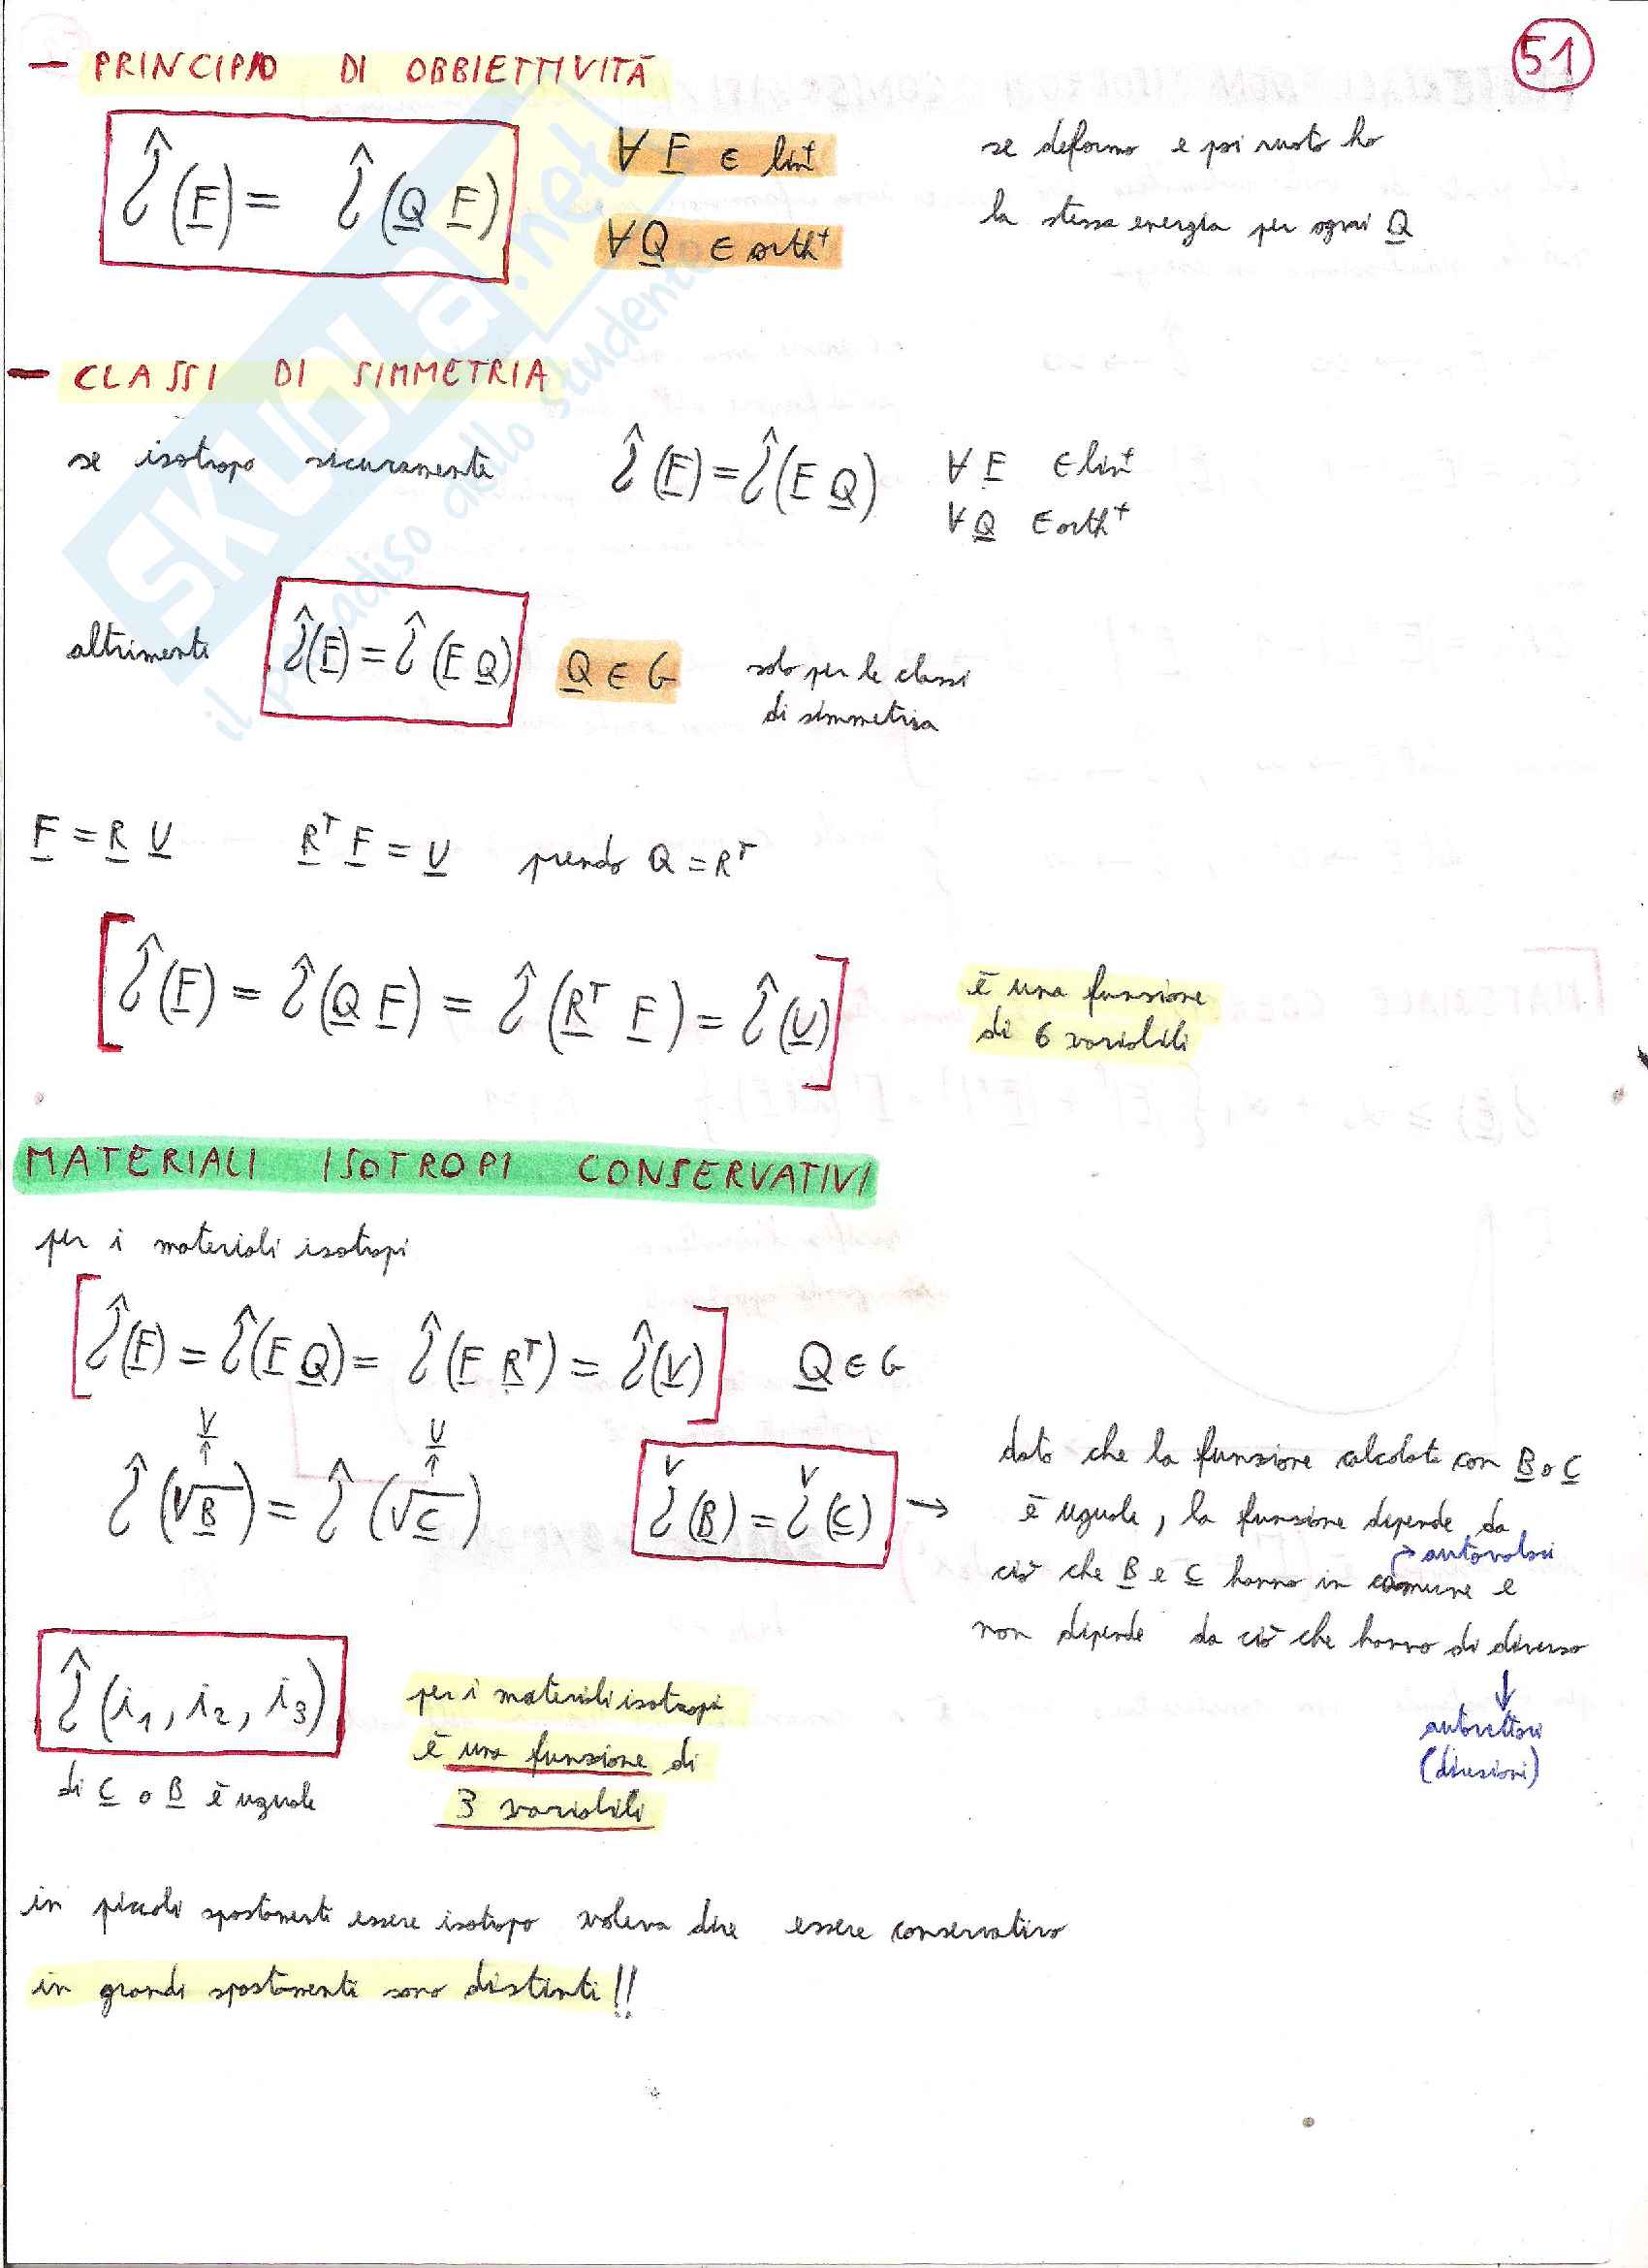 51
- PRINCIPIO DI OBBIETTIVITÀ
ζ̂(F) = ζ̂(Q F) ∀ F ∈ lin⁺ se deformo e poi ruoto ho
∀ Q ∈ orth⁺ la stessa energia per ogni Q
- CLASSI DI SIMMETRIA
se isotropo sicuramente ζ̂(F) = ζ̂(F Q) ∀ F ∈ lin⁺
∀ Q ∈ orth⁺
altrimenti ζ̂(F) = ζ̂(F Q) Q ∈ G solo per le classi
di simmetria
F = R U Rᵀ F = U prendo Q = Rᵀ
[ζ̂(F) = ζ̂(Q F) = ζ̂(Rᵀ F) = ζ̂(U)] è una funzione
di 6 variabili
MATERIALI ISOTROPI CONSERVATIVI
per i materiali isotropi
[ζ̂(F) = ζ̂(F Q) = ζ̂(F Rᵀ) = ζ̂(V)] Q ∈ G
V ↑ U ↑
ζ̂(√B) = ζ̂(√C) ζ̌(B) = ζ̌(C) → dato che la funzione calcolata con B o C
è uguale, la funzione dipende da
ciò che B e C hanno in comune e → autovalori
non dipende da ciò che hanno di diverso
↓
autovettori
(direzioni)
ζ̂(i₁, i₂, i₃) per i materiali isotropi
è una funzione di
di C o B è uguale 3 variabili
in piccoli spostamenti essere isotropo voleva dire essere conservativo
in grandi spostamenti sono distinti!!
SKUOLA.net
il paradiso dello studente